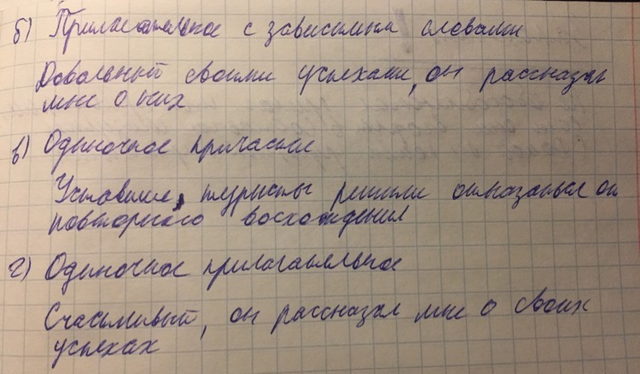 б) Прилагательное с зависимыми словами
Довольный своими успехами, он рассказал
мне о них
в) Одиночное причастие
Уставшие, туристы решили отказаться от
повторного восхождения
г) Одиночное прилагательное
Счастливый, он рассказал мне о своих
успехах